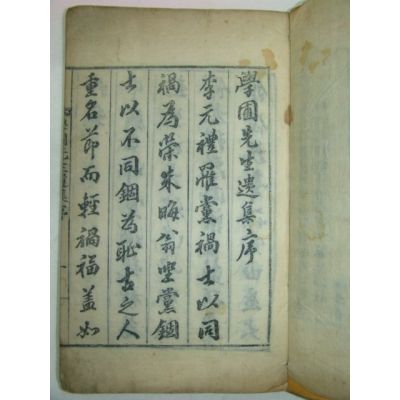 學圃先生遺集序
李元禮罹黨禍士以同
禍為榮朱晦翁坐黨錮
士以不同錮為恥古之人
重名節而輕禍福盖如